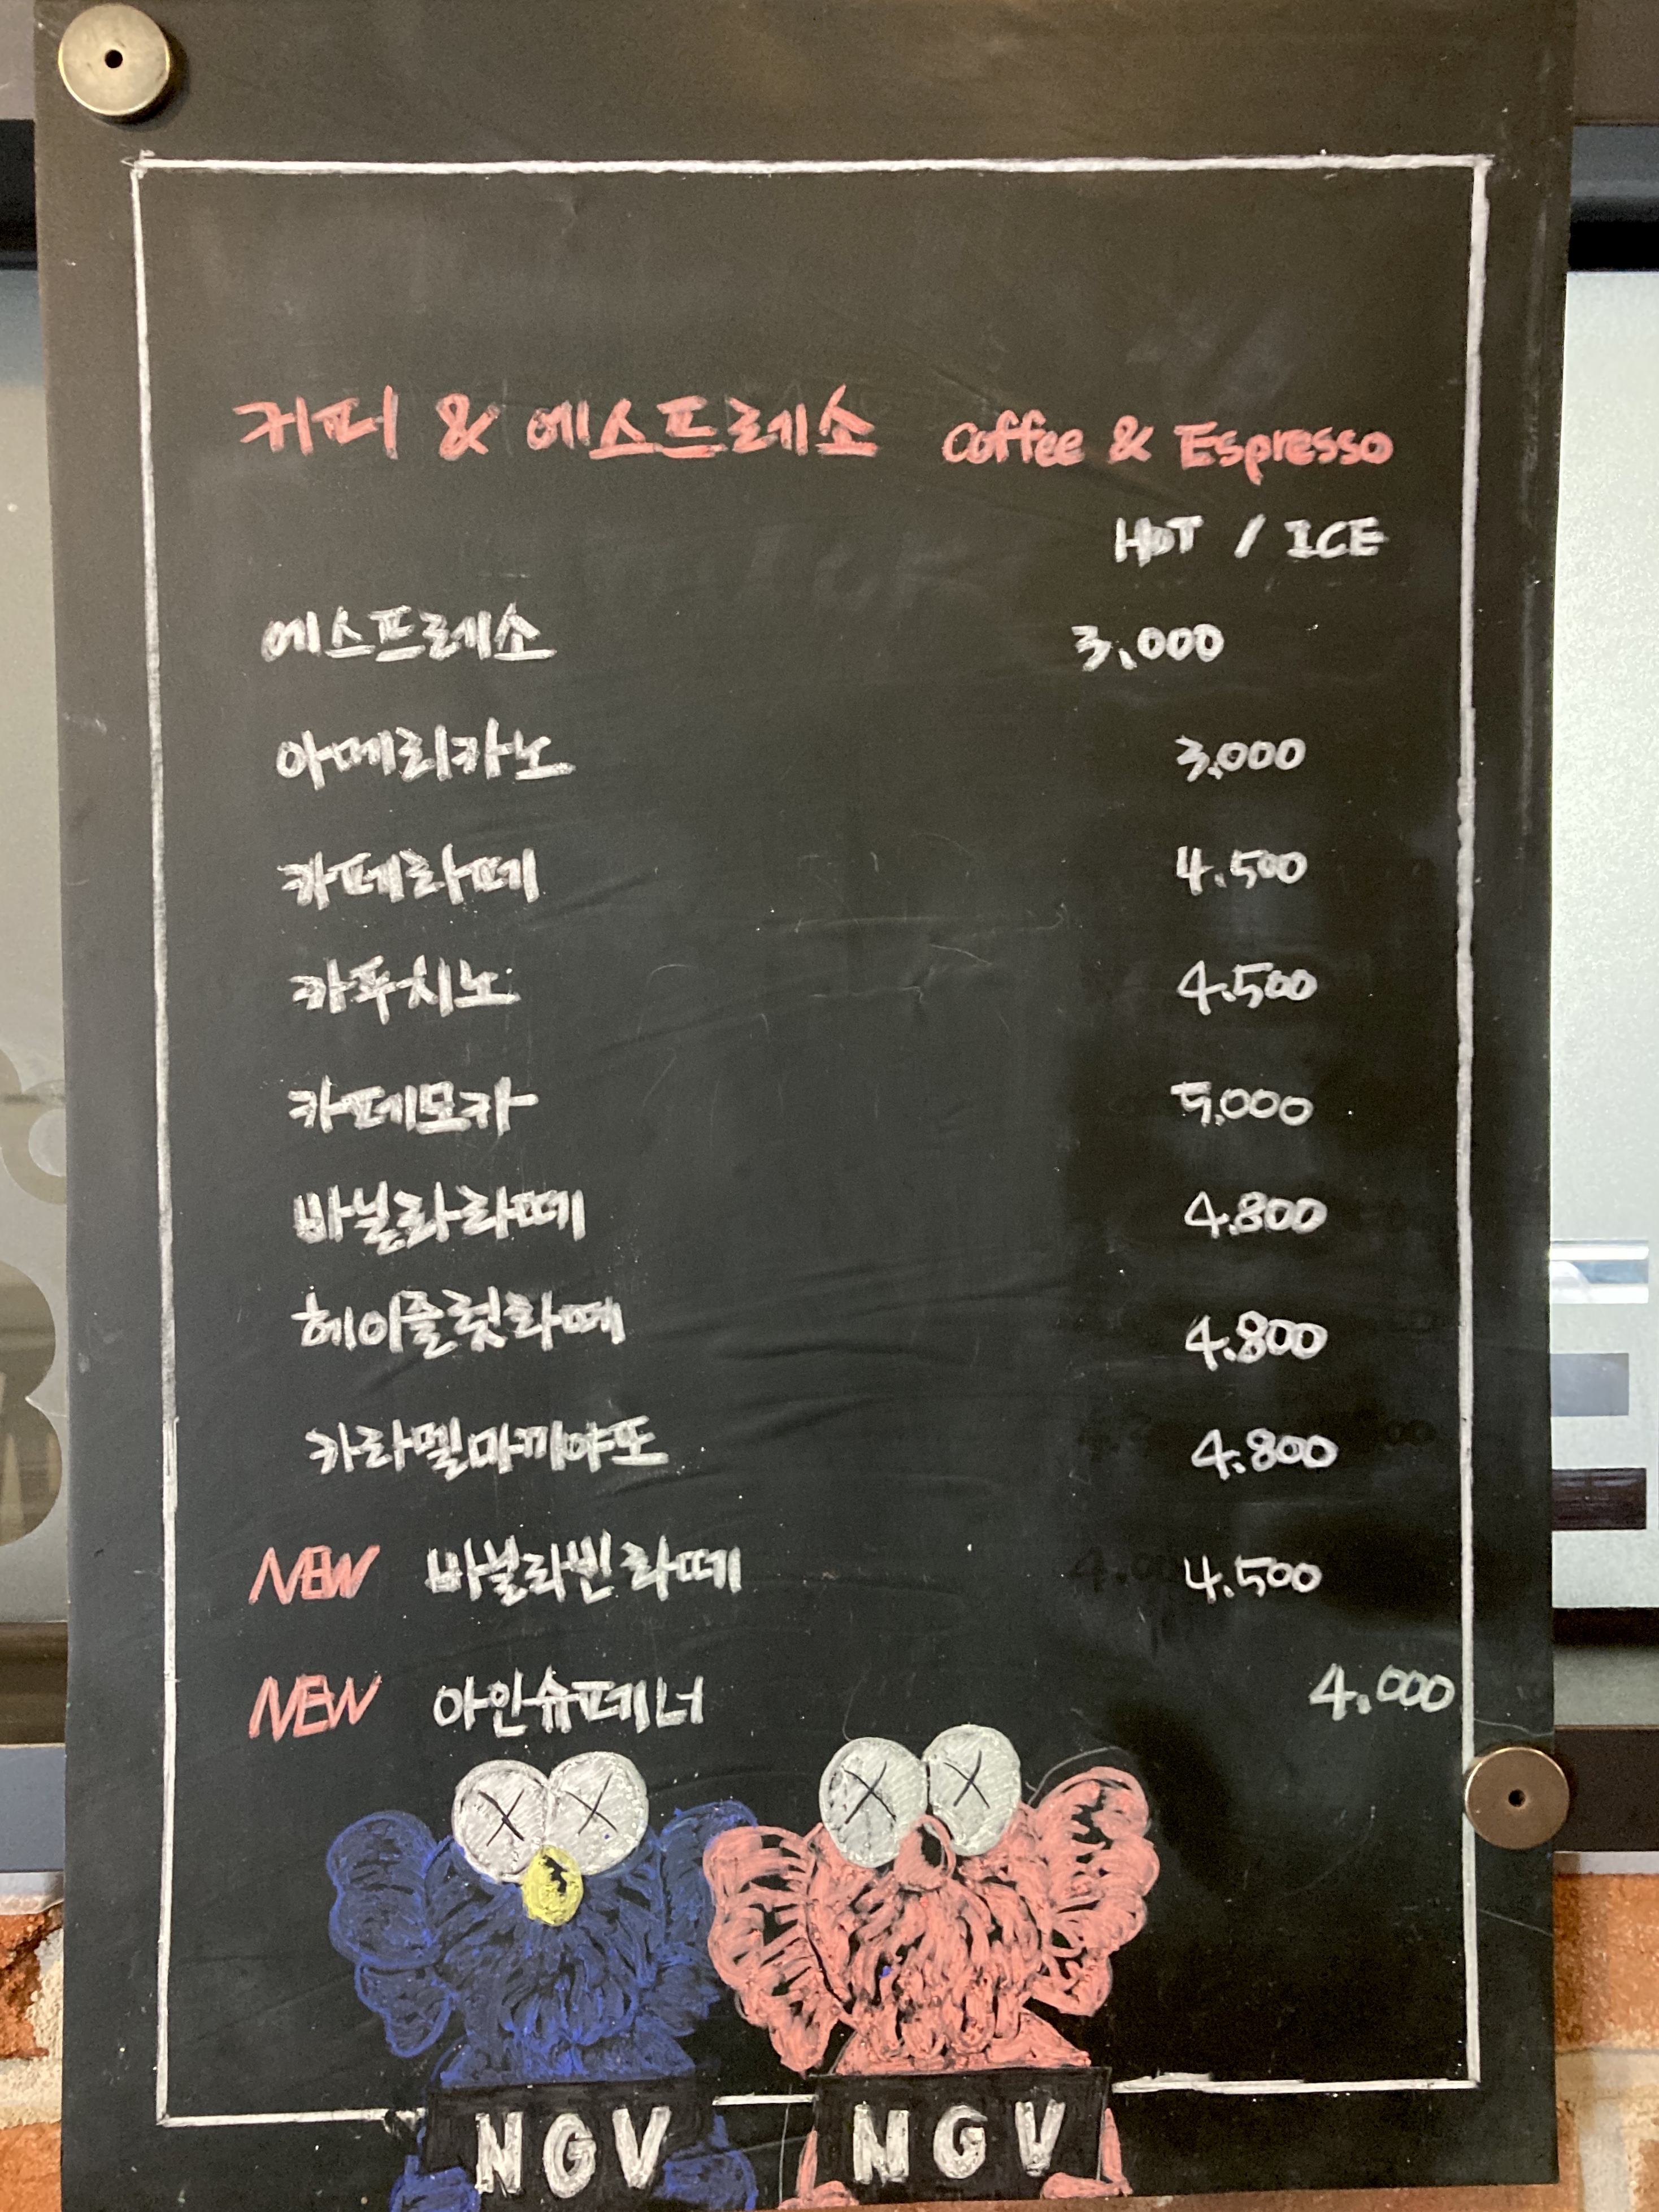 커피 & 에스프레소 Coffee & Espresso
HOT / ICE
에스프레소 3,000
아메리카노 3,000
카페라떼 4.500
카푸치노 4.500
카페모카 5,000
바닐라라떼 4.800
헤이즐럿라떼 4.800
카라멜마끼야또 4.800
NEW 바닐라빈라떼 4.500
NEW 아인슈페너 4.000
NGV NGV